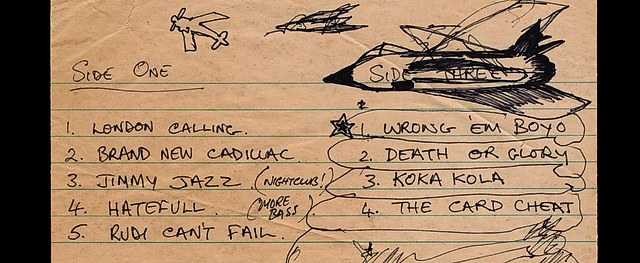 SIDE ONE
1. LONDON CALLING.
2. BRAND NEW CADILLAC.
3. JIMMY JAZZ. (NIGHTCLUB!)
4. HATEFULL. (MORE BASS)
5. RUDI CAN'T FAIL.
SIDE THREE
1. WRONG 'EM BOYO
2. DEATH OR GLORY
3. KOKA KOLA
4. THE CARD CHEAT